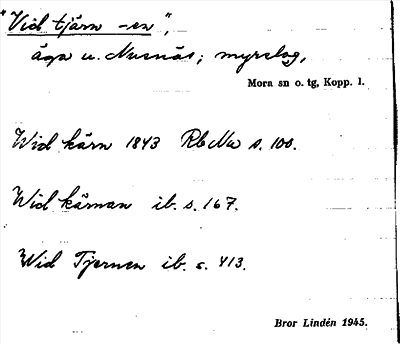 "Vid tjärn -en",
äga u. Nusnäs; myrslog,
Mora sn o. tg, Kopp. l.
Wid kärn 1843 RbNu s. 100.
Wid kärnan ib. s. 167.
Wid Tjernen ib. s. 413.
Bror Lindén 1945.